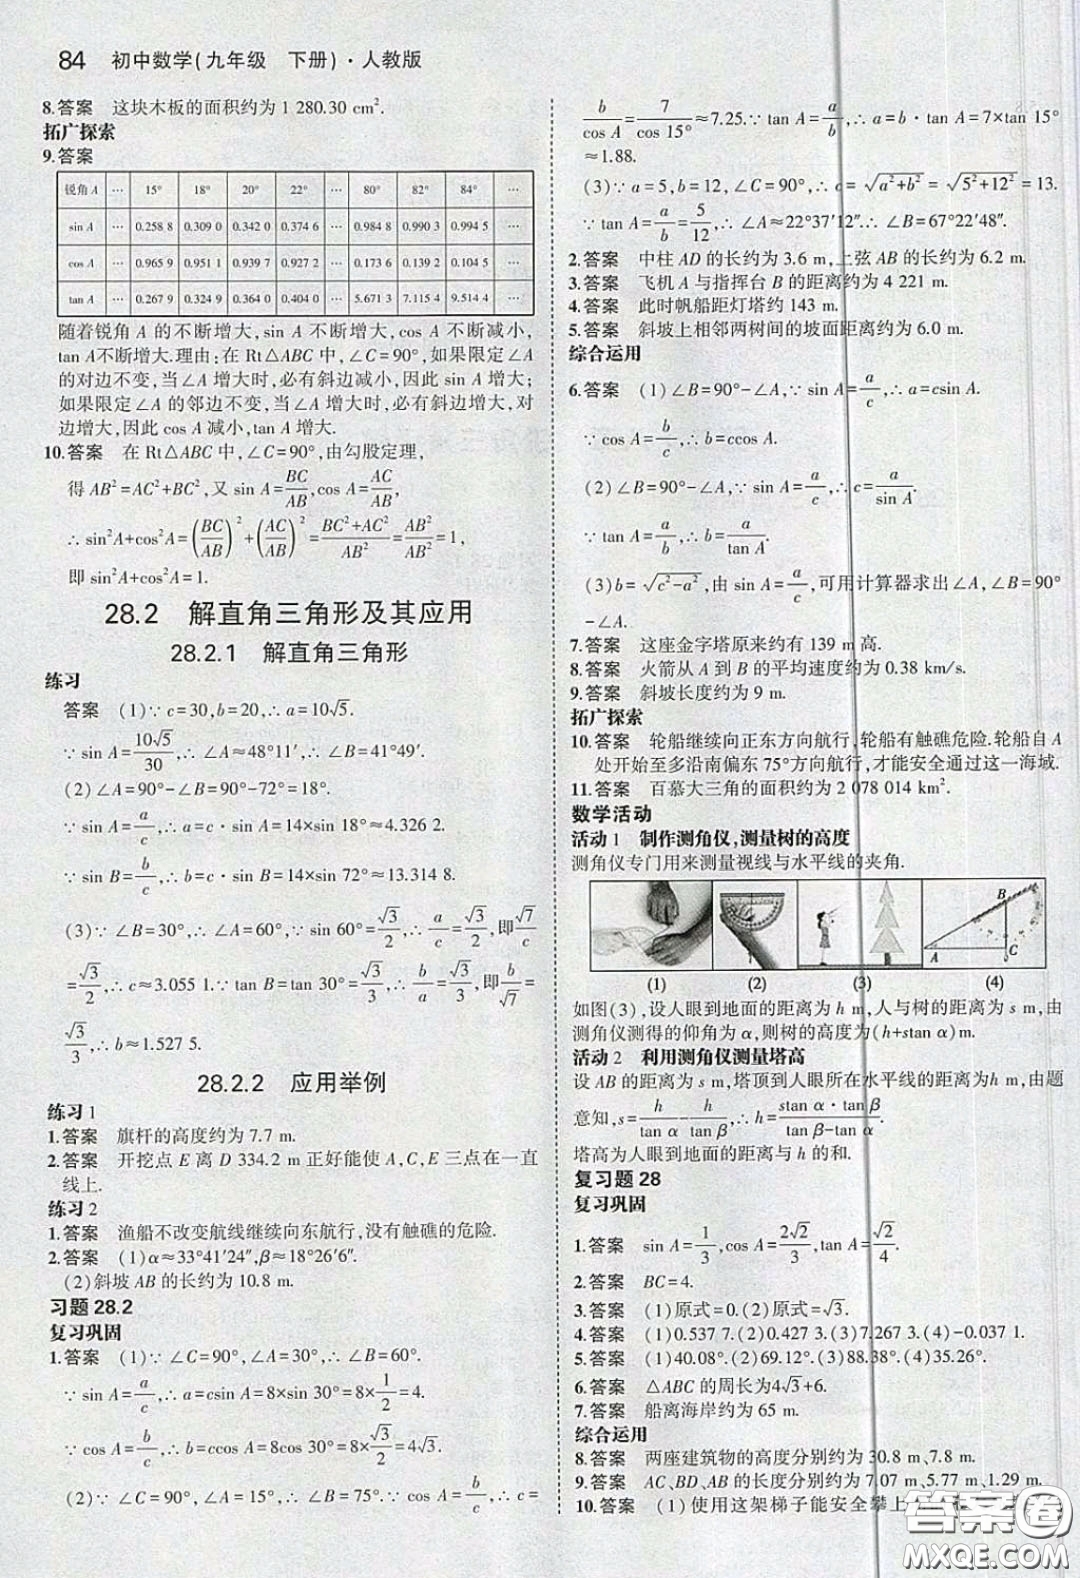 84 初中数学(九年级 下册)·人教版
8.答案 这块木板的面积约为 1 280.30 cm².
拓广探索
9.答案
锐角 A … 15° 18° 20° 22° … 80° 82° 84° …
sin A … 0.258 8 0.309 0 0.342 0 0.374 6 … 0.984 8 0.990 3 0.994 5 …
cos A … 0.965 9 0.951 1 0.939 7 0.927 2 … 0.173 6 0.139 2 0.104 5 …
tan A … 0.267 9 0.324 9 0.364 0 0.404 0 … 5.671 3 7.115 4 9.514 4 …
随着锐角 A 的不断增大,sin A 不断增大,cos A 不断减小,
tan A不断增大.理由:在 Rt△ABC 中,∠C=90°,如果限定∠A
的对边不变,当∠A 增大时,必有斜边减小,因此 sin A 增大;
如果限定∠A 的邻边不变,当∠A 增大时,必有斜边增大,对
边增大,因此 cos A 减小,tan A 增大.
10.答案 在 Rt△ABC 中,∠C=90°,由勾股定理,
得 AB²=AC²+BC²,又 sin A=BC/AB,cos A=AC/AB,
∴ sin²A+cos²A=(BC/AB)²+(AC/AB)²=(BC²+AC²)/AB²=AB²/AB²=1,
即 sin²A+cos²A=1.
28.2 解直角三角形及其应用
28.2.1 解直角三角形
练习
答案 (1)∵ c=30,b=20,∴ a=10√5.
∵ sin A=10√5/30,∴ ∠A≈48°11′,∴ ∠B=41°49′.
(2)∠A=90°-∠B=90°-72°=18°.
∵ sin A=a/c,∴ a=c·sin A=14×sin 18°≈4.326 2.
∵ sin B=b/c,∴ b=c·sin B=14×sin 72°≈13.314 8.
(3)∵ ∠B=30°,∴ ∠A=60°,∵ sin 60°=√3/2,∴ a/c=√3/2,即√7/c
=√3/2,∴ c≈3.055 1.∵ tan B=tan 30°=√3/3,∴ b/a=√3/3,即b/√7=
√3/3,∴ b≈1.527 5.
28.2.2 应用举例
练习 1
1.答案 旗杆的高度约为 7.7 m.
2.答案 开挖点 E 离 D 334.2 m 正好能使 A,C,E 三点在一直
线上.
练习 2
1.答案 渔船不改变航线继续向东航行,没有触礁的危险.
2.答案 (1)α≈33°41′24″,β≈18°26′6″.
(2)斜坡 AB 的长约为 10.8 m.
习题 28.2
复习巩固
1.答案 (1)∵ ∠C=90°,∠A=30°,∴ ∠B=60°.
∵ sin A=a/c,∴ a=csin A=8×sin 30°=8×1/2=4.
∵ cos A=b/c,∴ b=ccos A=8cos 30°=8×√3/2=4√3.
(2)∵ ∠C=90°,∠A=15°,∴ ∠B=75°.∵ cos A=b/c,∴ c=
b/cos A=7/cos 15°≈7.25.∵ tan A=a/b,∴ a=b·tan A=7×tan 15°
≈1.88.
(3)∵ a=5,b=12,∠C=90°,∴ c=√(a²+b²)=√(5²+12²)=13.
∵ tan A=a/b=5/12,∴ ∠A≈22°37′12″.∴ ∠B=67°22′48″.
2.答案 中柱 AD 的长约为 3.6 m,上弦 AB 的长约为 6.2 m.
3.答案 飞机 A 与指挥台 B 的距离约为 4 221 m.
4.答案 此时帆船距灯塔约 143 m.
5.答案 斜坡上相邻两树间的坡面距离约为 6.0 m.
综合运用
6.答案 (1)∠B=90°-∠A,∵ sin A=a/c,∴ a=csin A.
∵ cos A=b/c,∴ b=ccos A.
(2)∠B=90°-∠A,∵ sin A=a/c,∴ c=a/sin A.
∵ tan A=a/b,∴ b=a/tan A.
(3)b=√(c²-a²),由 sin A=a/c,可用计算器求出∠A,∠B=90°
-∠A.
7.答案 这座金字塔原来约有 139 m 高.
8.答案 火箭从 A 到 B 的平均速度约为 0.38 km/s.
9.答案 斜坡长度约为 9 m.
拓广探索
10.答案 轮船继续向正东方向航行,轮船有触礁危险.轮船自 A
处开始至多沿南偏东 75°方向航行,才能安全通过这一海域.
11.答案 百慕大三角的面积约为 2 078 014 km².
数学活动
活动 1 制作测角仪,测量树的高度
测角仪专门用来测量视线与水平线的夹角.
A B C
(1) (2) (3) (4)
如图(3),设人眼到地面的距离为 h m,人与树的距离为 s m,由
测角仪测得的仰角为 α,则树的高度为(h+stan α)m.
活动 2 利用测角仪测量塔高
设 AB 的距离为 s m,塔顶到人眼所在水平线的距离为h m,由题
意知,s=h/tan α-h/tan β,∴ h=stan α·tan β/(tan β-tan α).
塔高为人眼到地面的距离与 h 的和.
复习题 28
复习巩固
1.答案 sin A=1/3,cos A=2√2/3,tan A=√2/4.
2.答案 BC=4.
3.答案 (1)原式=0.(2)原式=√3.
4.答案 (1)0.537 7.(2)0.427 3.(3)7.267 3.(4)-0.037 1.
5.答案 (1)40.08°.(2)69.12°.(3)88.38°.(4)35.26°.
6.答案 △ABC 的周长为4√3+6.
7.答案 船离海岸约为 65 m.
综合运用
8.答案 两座建筑物的高度分别约为 30.8 m、7.8 m.
9.答案 AC,BD,AB 的长度分别约为 7.07 m、5.77 m、1.29 m.
10.答案 (1)使用这架梯子能安全攀上
答案圈
MXQE.COM